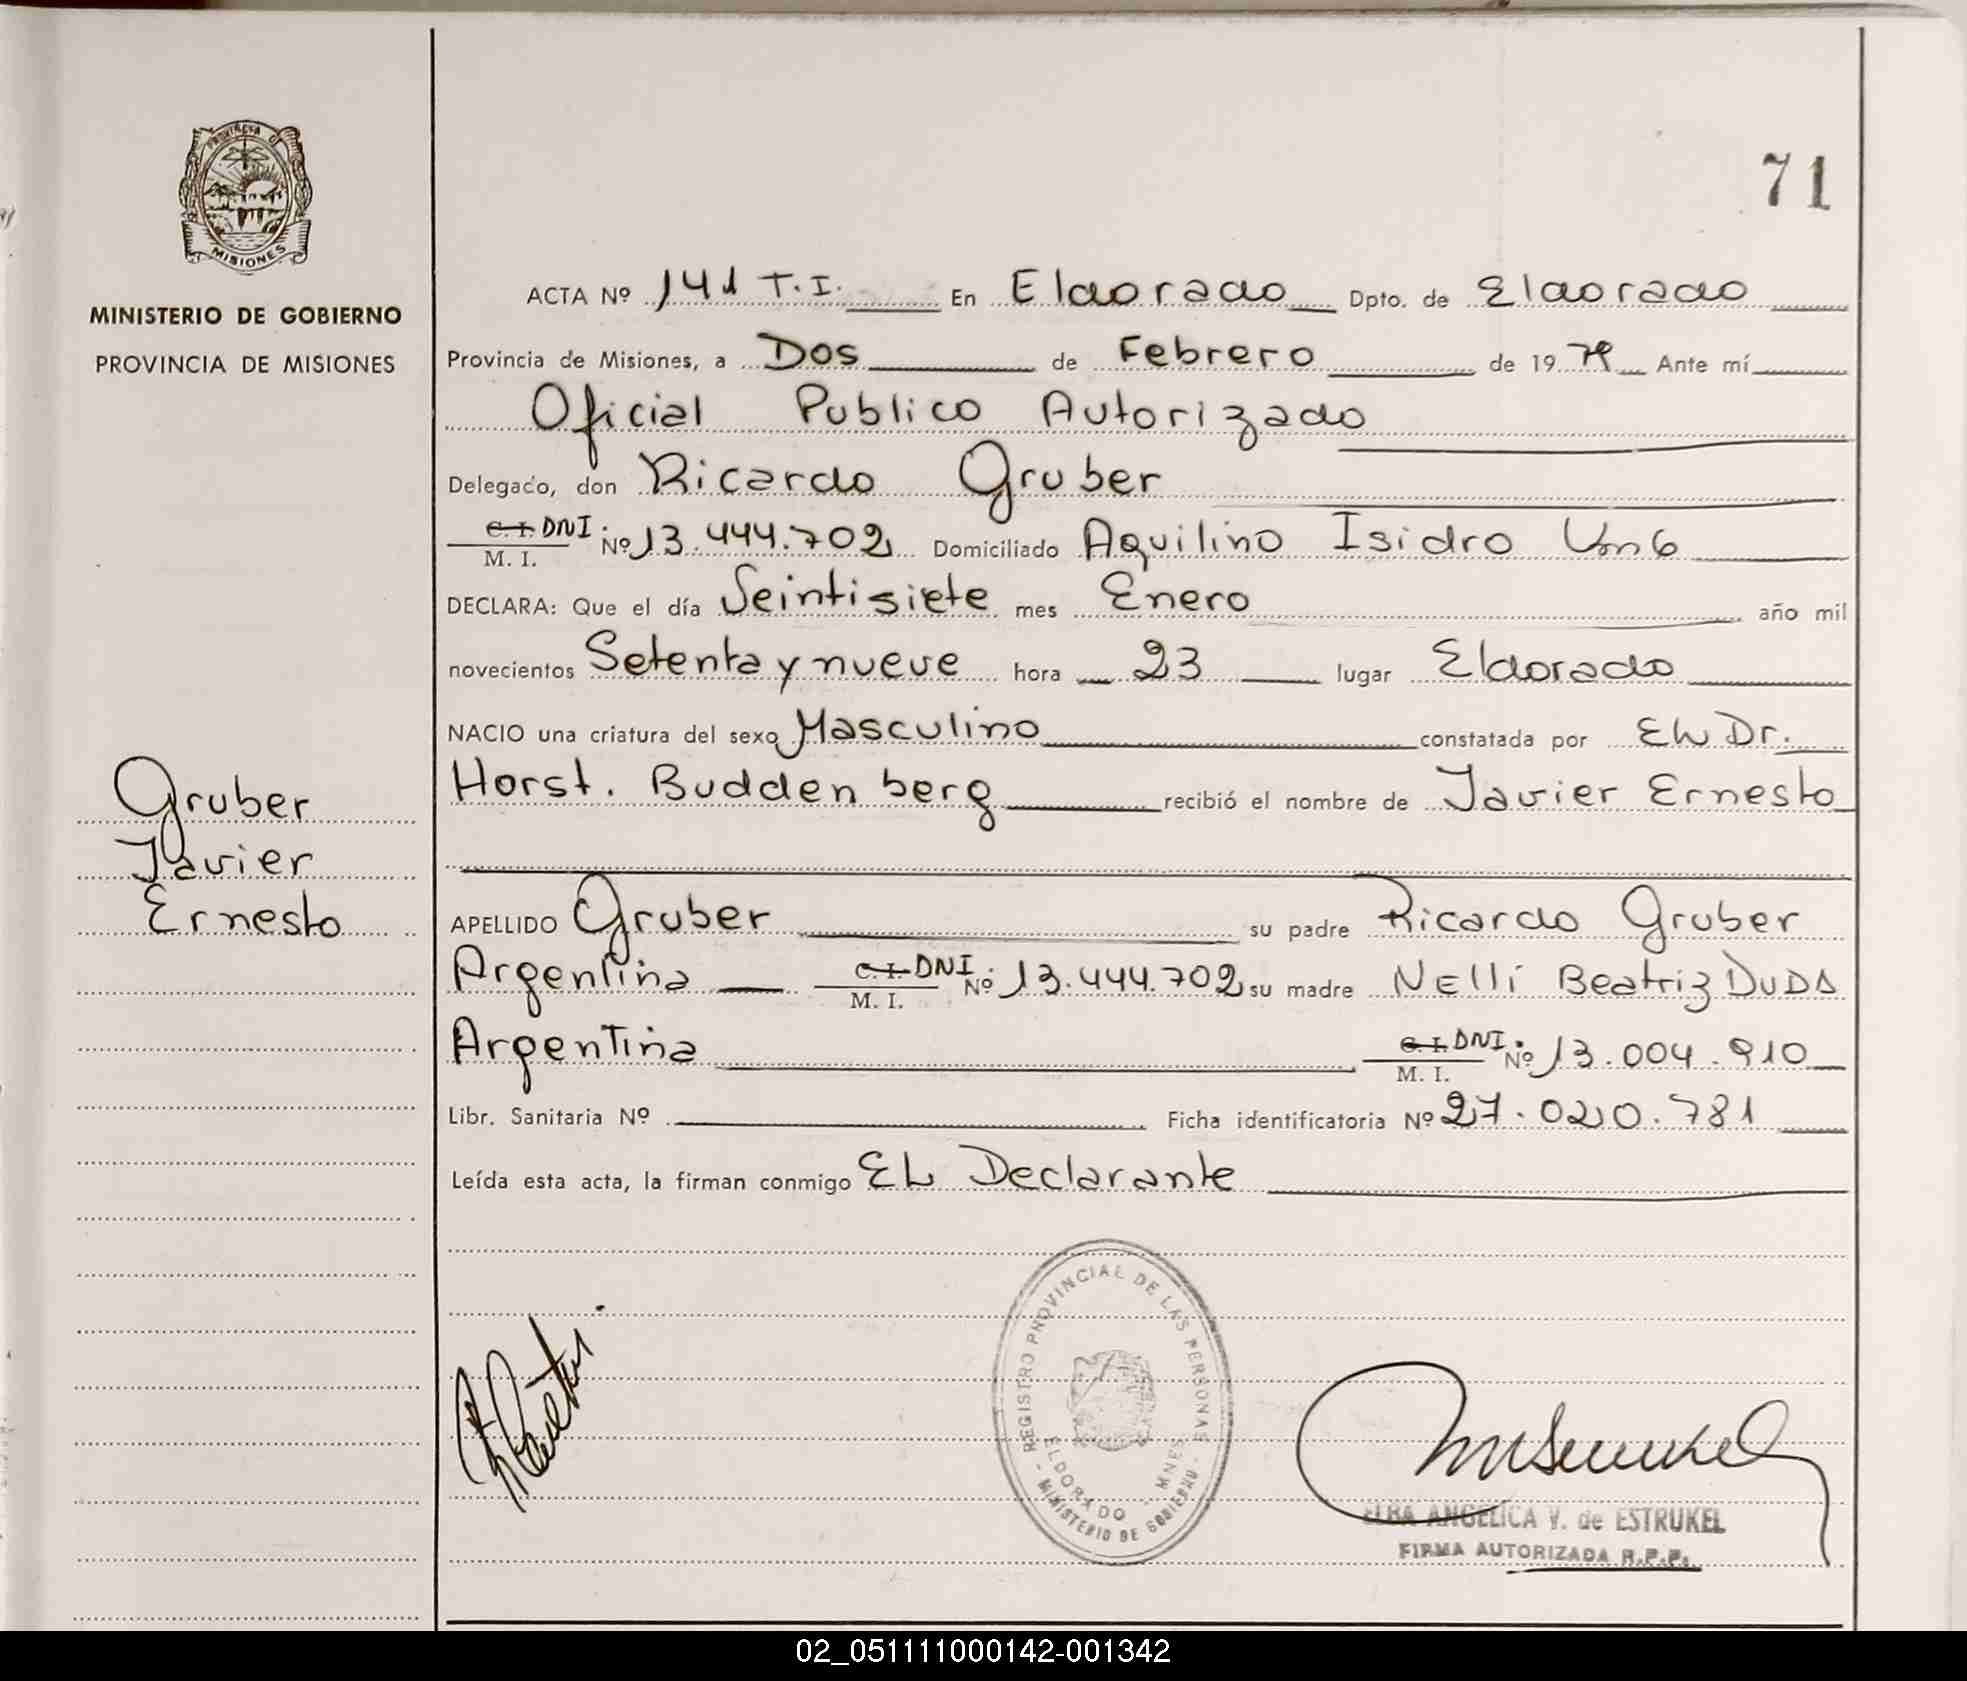 71
PROVINCIA DE
MISIONES
MINISTERIO DE GOBIERNO
PROVINCIA DE MISIONES
ACTA Nº 141 T.I. En Eldorado Dpto. de Eldorado
Provincia de Misiones, a Dos de Febrero de 1979 Ante mí
Oficial Publico Autorizado
Delegado, don Ricardo Gruber
C. I. DNI
M. I. Nº 13.444.702 Domiciliado Aquilino Isidro
DECLARA: Que el día Veintisiete mes Enero año mil
novecientos Setenta y nueve hora 23 lugar Eldorado
NACIO una criatura del sexo Masculino constatada por EL Dr.
Horst. Buddenberg recibió el nombre de Javier Ernesto
Gruber
Javier
Ernesto
APELLIDO Gruber su padre Ricardo Gruber
Argentina C. I. DNI
M. I. Nº 13.444.702 su madre NElli Beatriz DUDA
Argentina C. I. DNI
M. I. Nº 13.004.910
Libr. Sanitaria Nº Ficha identificatoria Nº 27.020.781
Leída esta acta, la firman conmigo EL Declarante
REGISTRO PROVINCIAL DE LAS PERSONAS
ELDORADO - MNES
- MINISTERIO DE GOBIERNO -
ELBA ANGELICA V. de ESTRUKEL
FIRMA AUTORIZADA R.P.P.
02_051111000142-001342